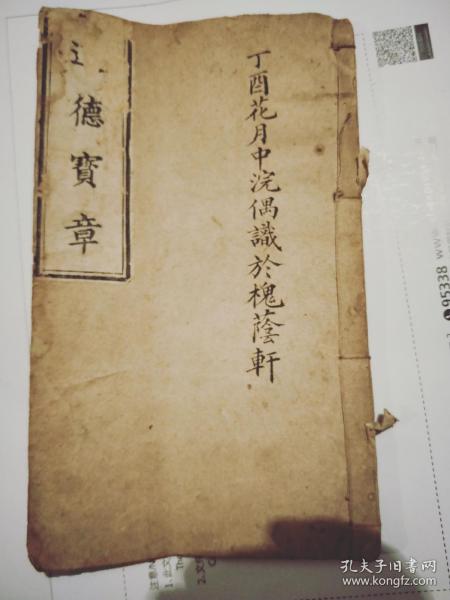 丁酉花月中浣偶識於槐蔭軒
德寳章
95338
www
孔夫子旧书网
www.kongfz.com